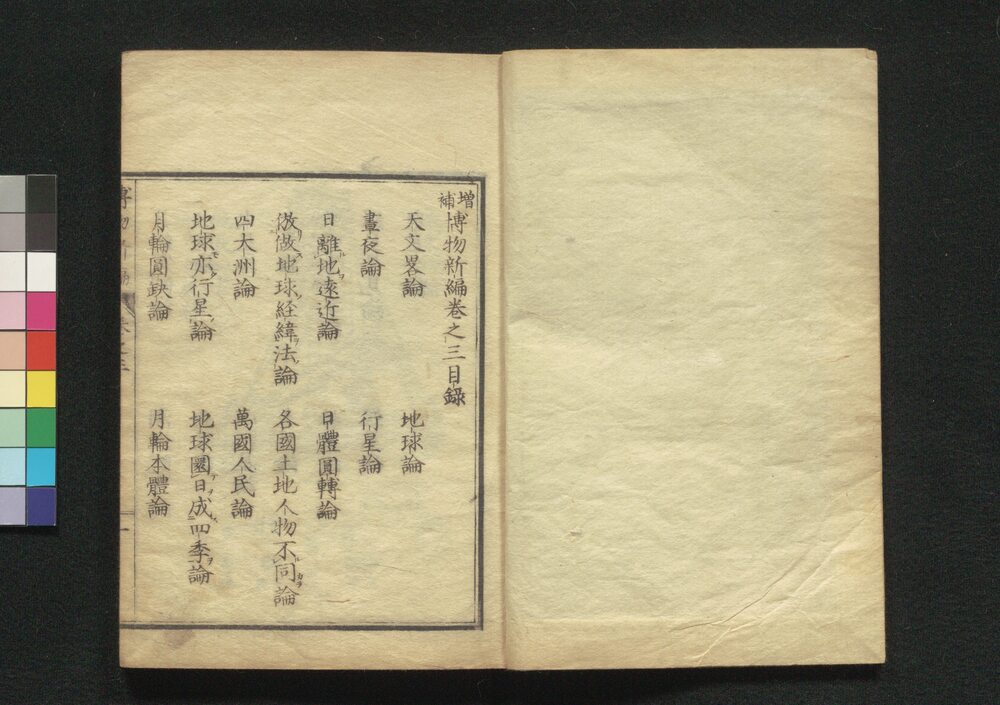 増補博物新編巻之三目錄
天文畧論
地球論
晝夜論
行星論
日離地遠近論
日體圓轉論
倣做地球経緯法論
各國土地人物不同論
四大洲論
萬國人民論
地球亦行星論
地球圜日成四季論
月輪圓缺論
月輪本體論